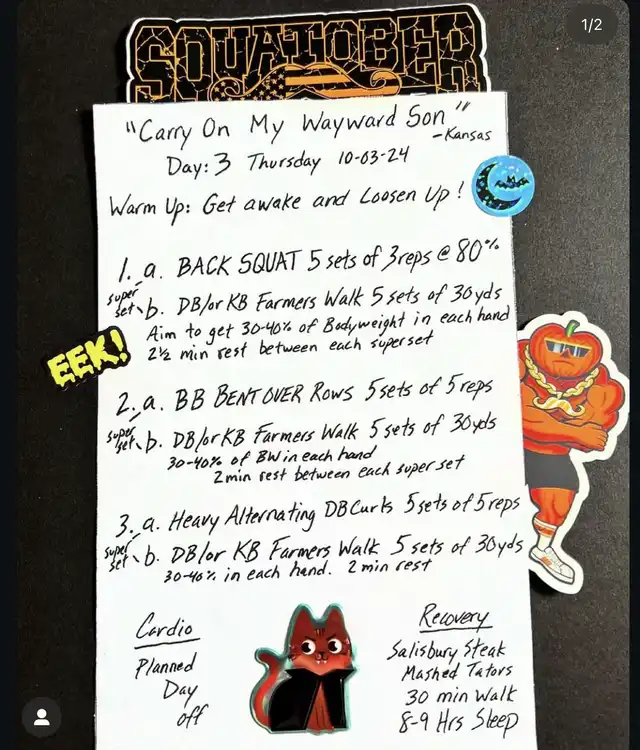 1/2
SQUATOBER
"Carry On My Wayward Son"
-Kansas
Day: 3 Thursday 10-03-24
Warm Up: Get awake and Loosen Up!
1. a. BACK SQUAT 5 sets of 3 reps @ 80%
super set b. DB/or KB Farmers Walk 5 sets of 30yds
Aim to get 30-40% of Bodyweight in each hand
2½ min rest between each superset
EEK!
2. a. BB BENT OVER Rows 5 sets of 5 reps
super set b. DB/or KB Farmers Walk 5 sets of 30yds
30-40% of BW in each hand
2 min rest between each super set
3. a. Heavy Alternating DB Curls 5 sets of 5 reps
super set b. DB/or KB Farmers Walk 5 sets of 30yds
30-40% in each hand. 2 min rest
Cardio
Planned
Day
off
Recovery
Salisbury Steak
Mashed Tators
30 min Walk
8-9 Hrs Sleep